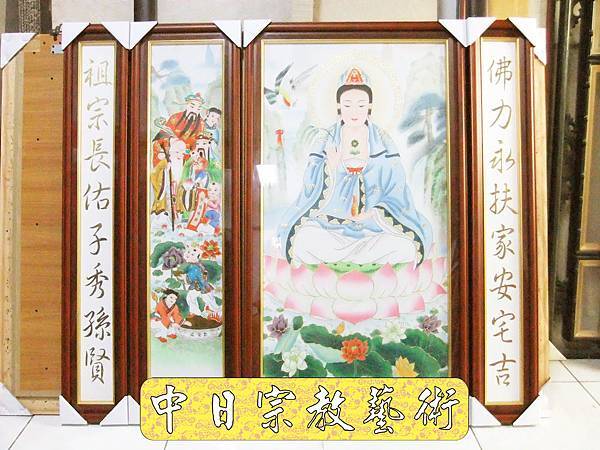 佛力永扶家安宅吉
祖宗長佑子秀孫賢
中日宗教藝術